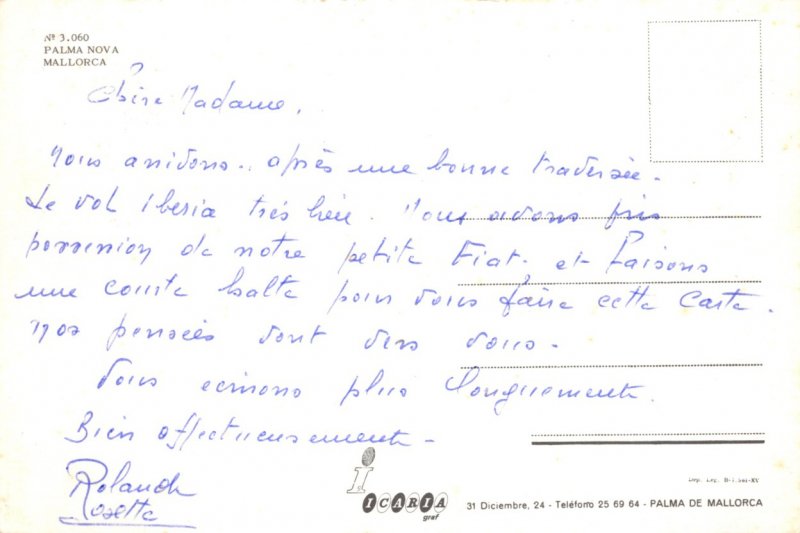 Nº 3.060
PALMA NOVA
MALLORCA
Chère Madame,
Nous arrivons.. après une bonne traversée.
Le vol Iberia très bien. Nous avons pris
possession de notre petite Fiat. et faisons
une courte halte pour vous faire cette carte.
nos pensées vont vers vous.
Vous écrirons plus longuement.
Bien affectueusement.
Roland
Josette
i
ICARIA
graf
31 Diciembre, 24 - Teléfono 25 69 64 - PALMA DE MALLORCA